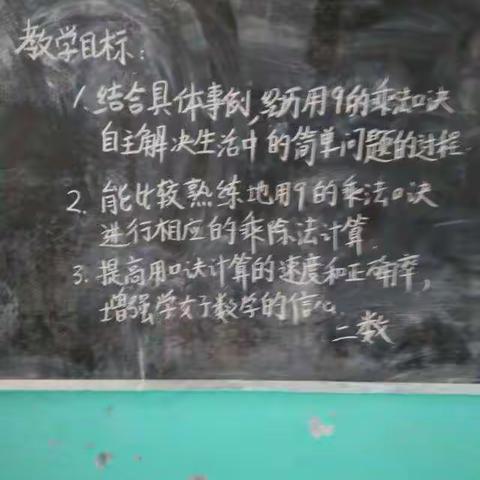 教学目标：
1. 结合具体事例，经历用9的乘法口诀
自主解决生活中的简单问题的过程.
2. 能比较熟练地用9的乘法口诀
进行相应的乘除法计算.
3. 提高用口诀计算的速度和正确率，
增强学好数学的信心.
二数